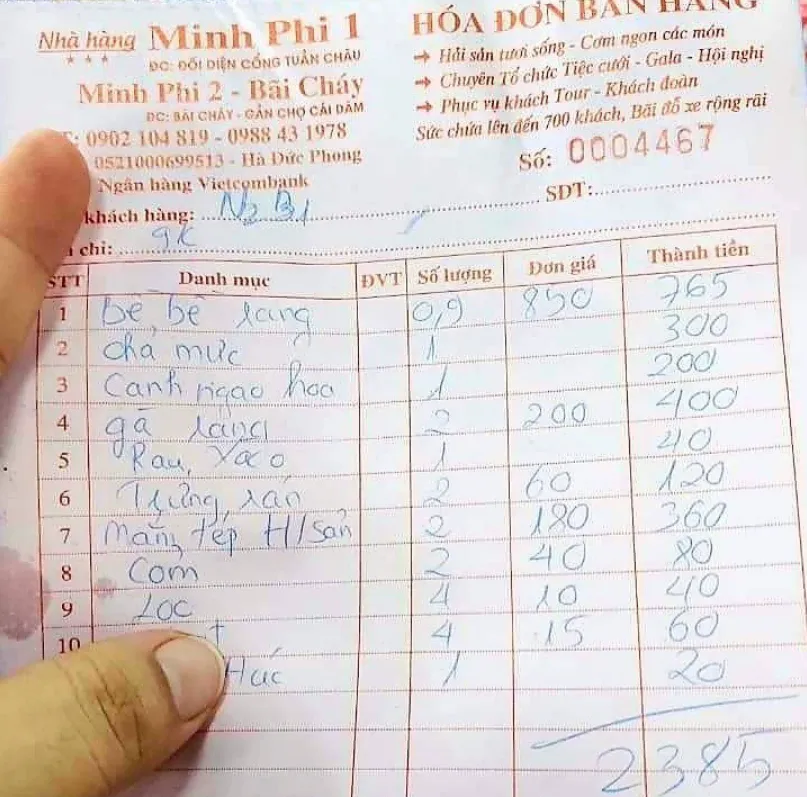 Nhà hàng Minh Phi 1
ĐC: ĐỐI DIỆN CỔNG TUẦN CHÂU
Minh Phi 2 - Bãi Cháy
ĐC: BÃI CHÁY - GẦN CHỢ CÁI DĂM
: 0902 104 819 - 0988 43 1978
0521000699513 - Hà Đức Phong
Ngân hàng Vietcombank
HÓA ĐƠN BÁN HÀNG
→ Hải sản tươi sống - Cơm ngon các món
→ Chuyên Tổ chức Tiệc cưới - Gala - Hội nghị
→ Phục vụ khách Tour - Khách đoàn
Sức chứa lên đến 700 khách, Bãi đỗ xe rộng rãi
Số: 0004467
khách hàng: N2 B1 SDT:
chỉ: 9K
STT Danh mục ĐVT Số lượng Đơn giá Thành tiền
1 bề bề rang 0,9 850 765
2 chả mực 1 300
3 Canh ngao hoa 1 200
4 gà rang 2 200 400
5 Rau xào 1 40
6 Trứng rán 2 60 120
7 Mắm tép H/sản 2 180 360
8 Cơm 2 40 80
9 Lọc 4 10 40
10 4 15 60
1 20
2385